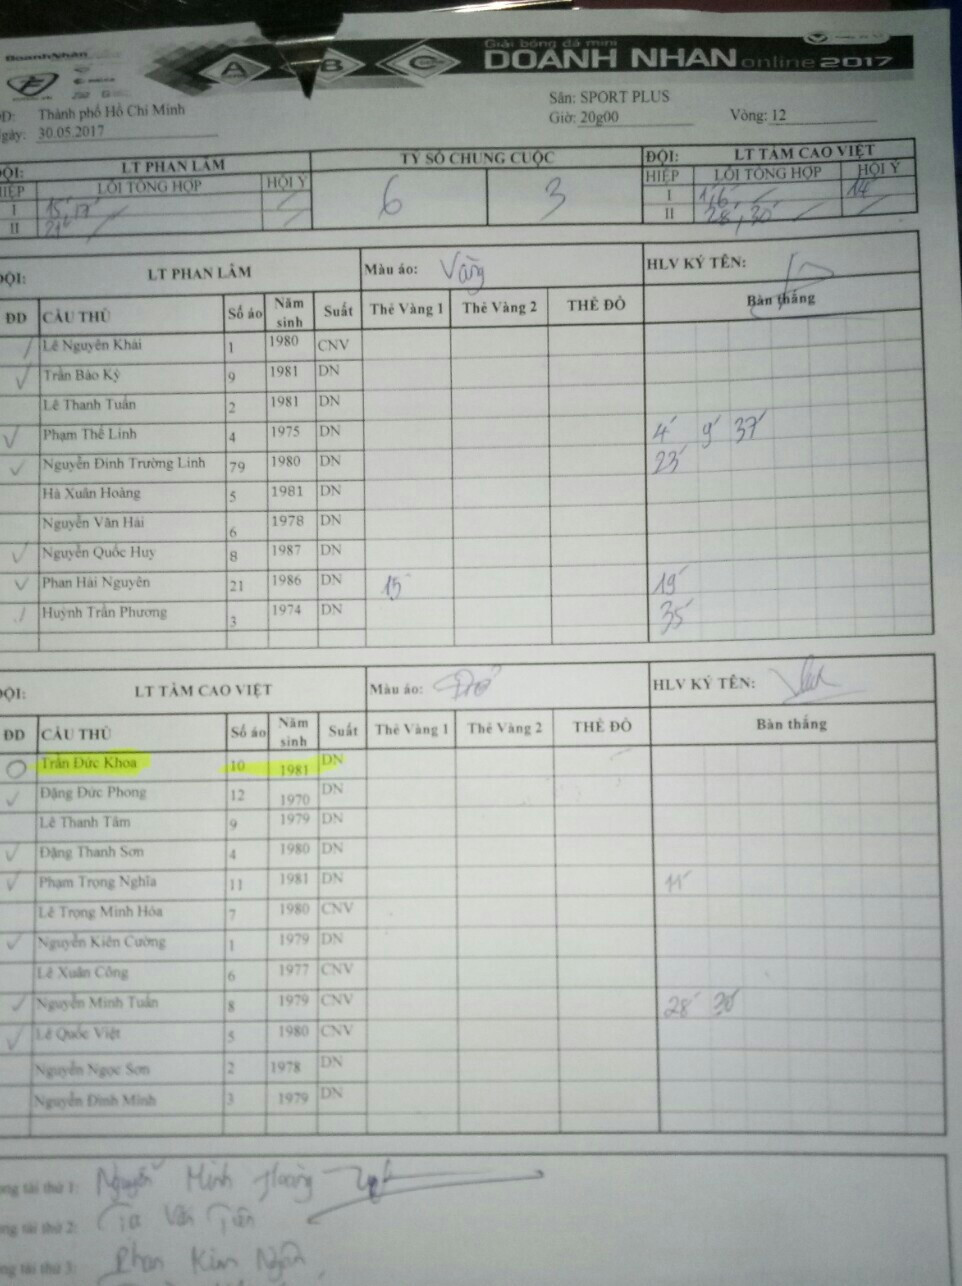 DoanhNhân
A B C
Giải bóng đá mini
DOANH NHAN online 2017
Thành phố Hồ Chí Minh
Ngày: 30.05.2017
Sân: SPORT PLUS
Giờ: 20g00
Vòng: 12
ĐỘI: LT PHAN LÂM TỶ SỐ CHUNG CUỘC ĐỘI: LT TÂM CAO VIỆT
HIỆP LỖI TỔNG HỢP HỘI Ý 6 3 HIỆP LỖI TỔNG HỢP HỘI Ý
I 15', 17' I 1', 6' 14'
II 21' II 28', 30'
ĐỘI: LT PHAN LÂM Màu áo: Vàng HLV KÝ TÊN:
ĐD CẦU THỦ Số áo Năm sinh Suất Thẻ Vàng 1 Thẻ Vàng 2 THẺ ĐỎ Bàn thắng
Lê Nguyên Khải 1 1980 CNV
Trần Bảo Kỳ 9 1981 DN
Lê Thanh Tuấn 2 1981 DN
Phạm Thế Linh 4 1975 DN 4' 9' 37'
Nguyễn Đình Trường Linh 79 1980 DN 23'
Hà Xuân Hoàng 5 1981 DN
Nguyễn Văn Hải 6 1978 DN
Nguyễn Quốc Huy 8 1987 DN
Phan Hải Nguyên 21 1986 DN 15' 19'
Huỳnh Trần Phương 3 1974 DN 35'
ĐỘI: LT TÂM CAO VIỆT Màu áo: Đỏ HLV KÝ TÊN:
ĐD CẦU THỦ Số áo Năm sinh Suất Thẻ Vàng 1 Thẻ Vàng 2 THẺ ĐỎ Bàn thắng
Trần Đức Khoa 10 1981 DN
Đặng Đức Phong 12 1970 DN
Lê Thanh Tâm 9 1979 DN
Đặng Thanh Sơn 4 1980 DN
Phạm Trọng Nghĩa 11 1981 DN 11'
Lê Trọng Minh Hóa 7 1980 CNV
Nguyễn Kiên Cường 1 1979 DN
Lê Xuân Công 6 1977 CNV
Nguyễn Minh Tuấn 8 1979 CNV 28' 30'
Lê Quốc Việt 5 1980 CNV
Nguyễn Ngọc Sơn 2 1978 DN
Nguyễn Đình Minh 3 1979 DN
ọng tài thứ 1: Nguyễn Minh Hoàng
ọng tài thứ 2: Tạ Văn Tiên
ọng tài thứ 3: Phan Kim Ngân